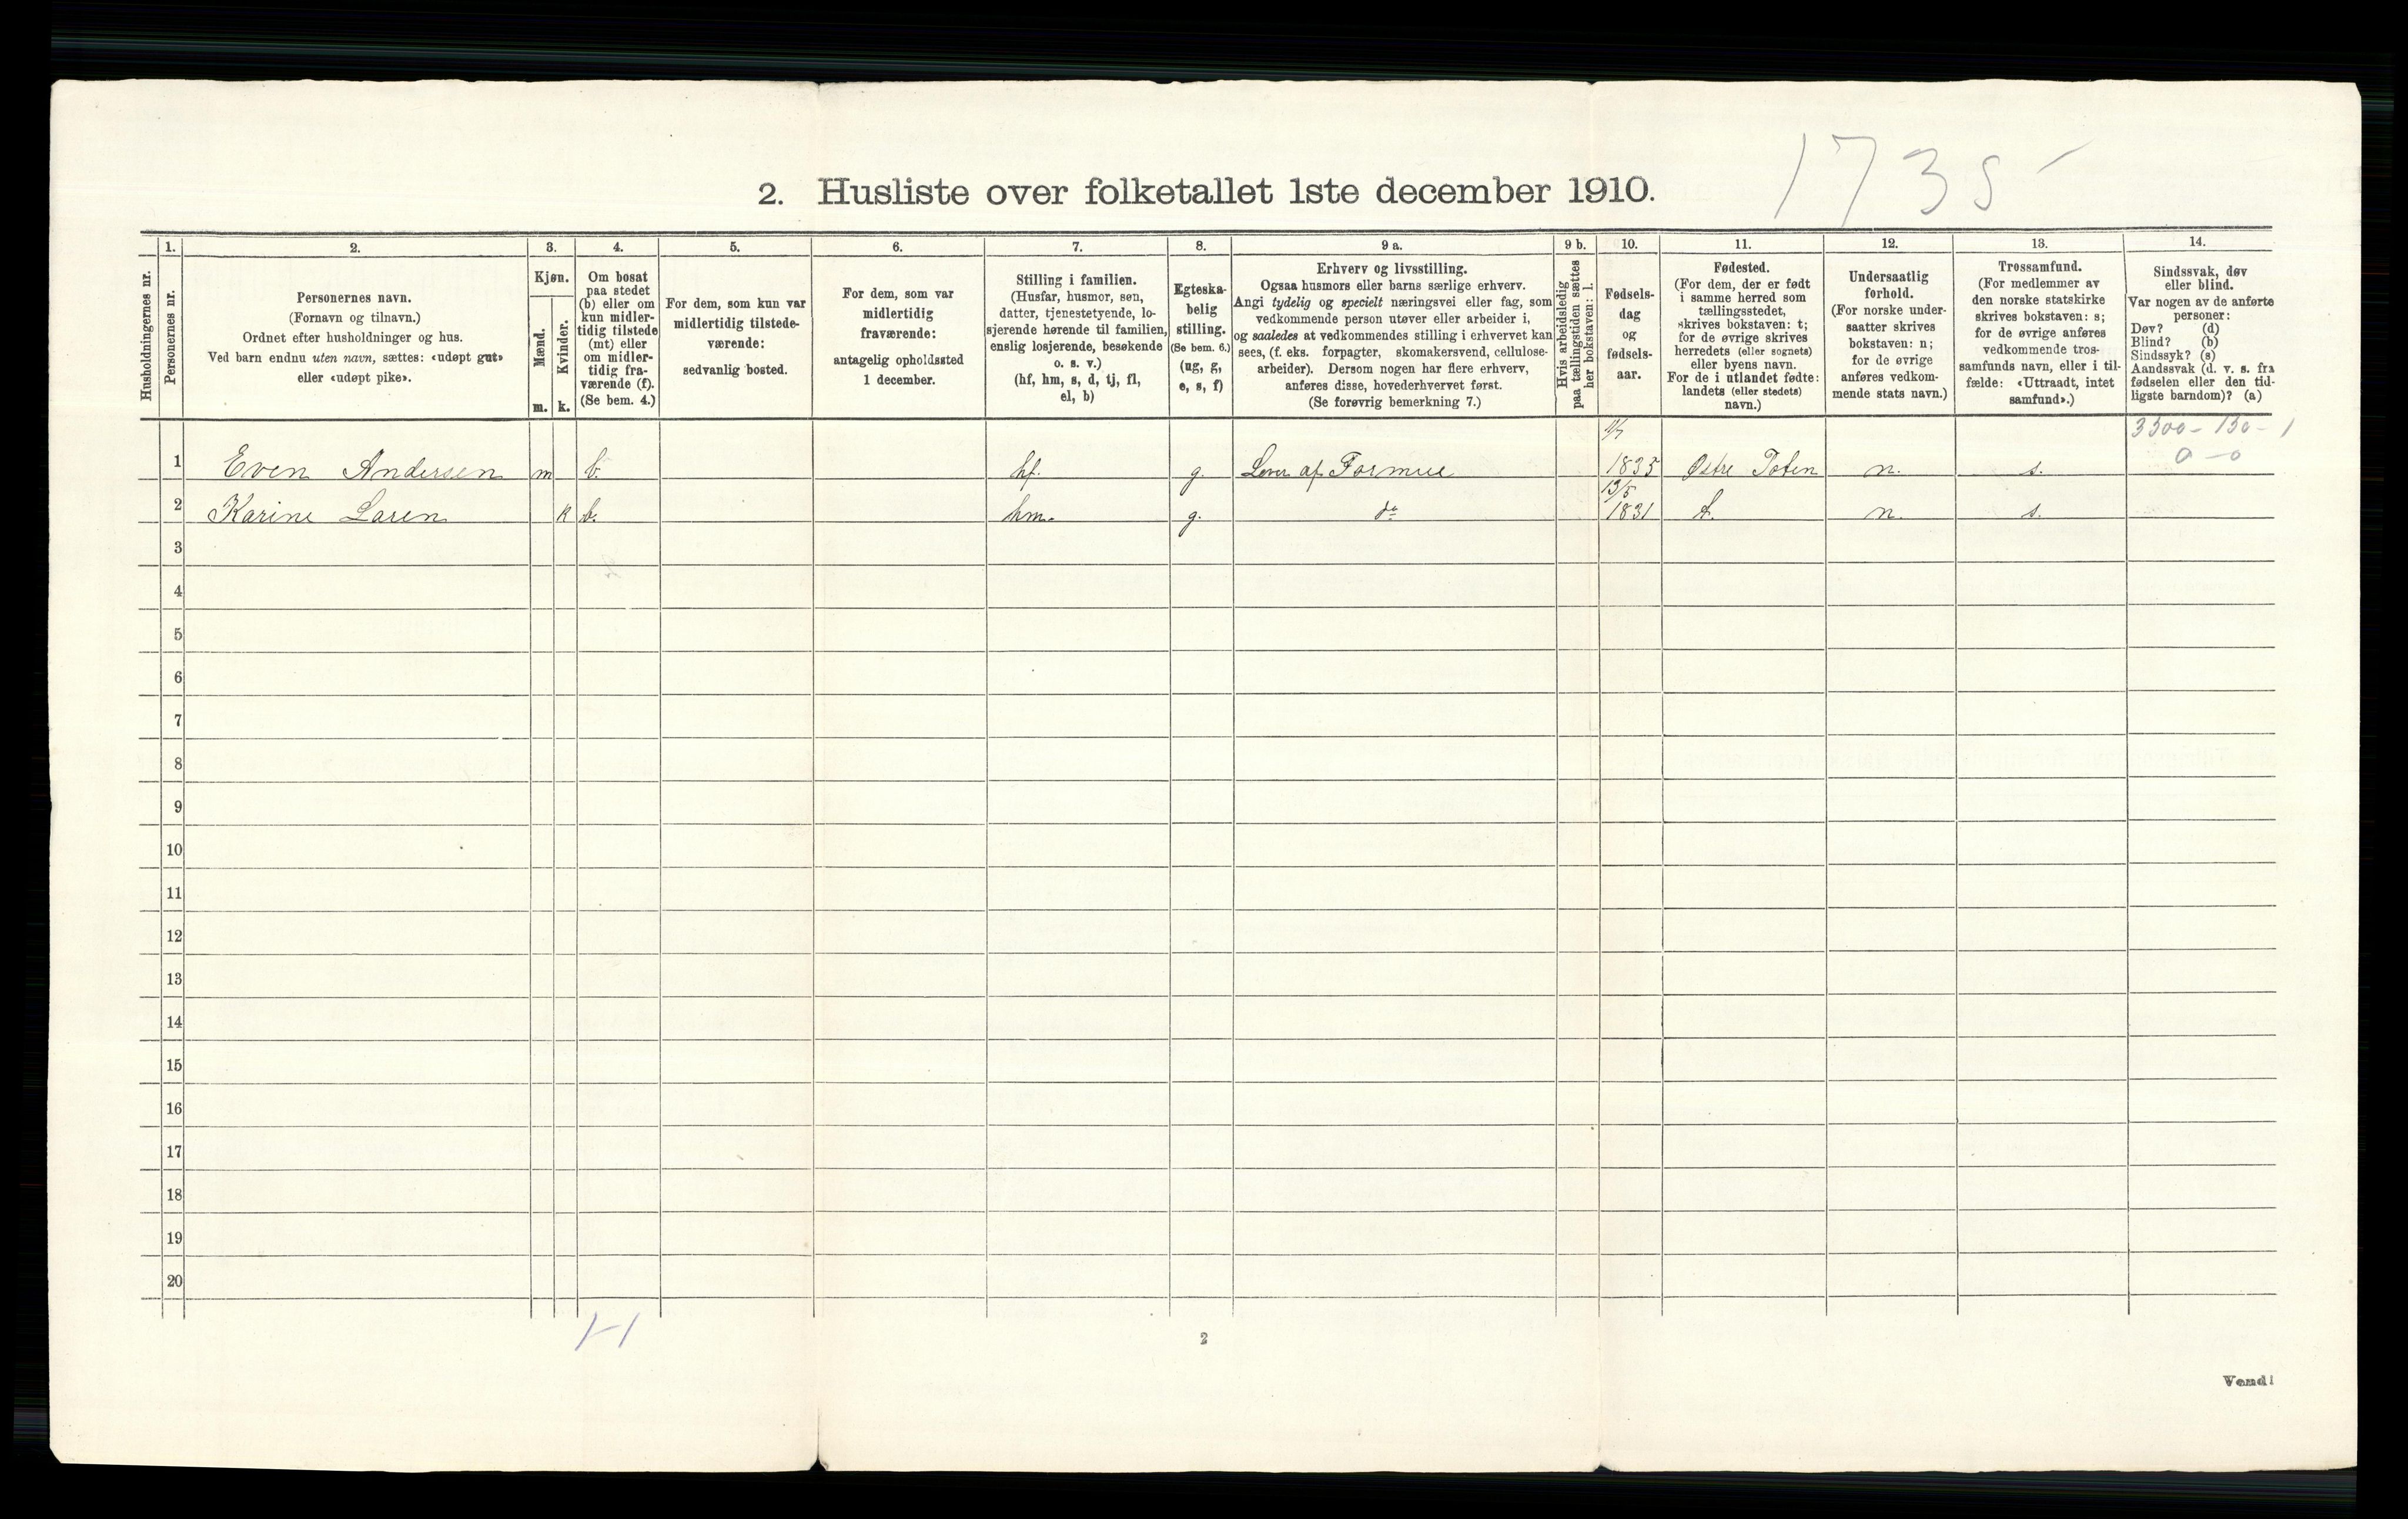 1735
2. Husliste over folketallet 1ste december 1910.
Husholdningernes nr.
1.
Personernes nr.
2.
Personernes navn.
(Fornavn og tilnavn.)
Ordnet efter husholdninger og hus.
Ved barn endnu uten navn, sættes: «udøpt gut»
eller «udøpt pike».
3.
Kjøn.
Mænd.
m.
Kvinder.
k.
4.
Om bosat
paa stedet
(b) eller om
kun midler-
tidig tilstede
(mt) eller
om midler-
tidig fra-
værende (f).
(Se bem. 4.)
5.
For dem, som kun var
midlertidig tilstede-
værende:
sedvanlig bosted.
6.
For dem, som var
midlertidig
fraværende:
antagelig opholdssted
1 december.
7.
Stilling i familien.
(Husfar, husmor, søn,
datter, tjenestetyende, lo-
sjerende hørende til familien,
enslig losjerende, besøkende
o. s. v.)
(hf, hm, s, d, tj, fl,
el, b)
8.
Egteska-
belig
stilling.
(Se bem. 6.)
(ug, g,
e, s, f)
9 a.
Erhverv og livsstilling.
Ogsaa husmors eller barns særlige erhverv.
Angi tydelig og specielt næringsvei eller fag, som
vedkommende person utøver eller arbeider i,
og saaledes at vedkommendes stilling i erhvervet kan
sees, (f. eks. forpagter, skomakersvend, cellulose-
arbeider). Dersom nogen har flere erhverv,
anføres disse, hovederhvervet først.
(Se forøvrig bemerkning 7.)
9 b.
Hvis arbeidsledig
paa tællingstiden sættes
her bokstaven: l.
10.
Fødsels-
dag
og
fødsels-
aar.
11.
Fødested.
(For dem, der er født
i samme herred som
tællingsstedet,
skrives bokstaven: t;
for de øvrige skrives
herredets (eller sognets)
eller byens navn.
For de i utlandet fødte:
landets (eller stedets)
navn.)
12.
Undersaatlig
forhold.
(For norske under-
saatter skrives
bokstaven: n;
for de øvrige
anføres vedkom-
mende stats navn.)
13.
Trossamfund.
(For medlemmer av
den norske statskirke
skrives bokstaven: s;
for de øvrige anføres
vedkommende tros-
samfunds navn, eller i til-
fælde: «Uttraadt, intet
samfund».)
14.
Sindssvak, døv
eller blind.
Var nogen av de anførte
personer:
Døv? (d)
Blind? (b)
Sindssyk? (s)
Aandssvak (d. v. s. fra
fødselen eller den tid-
ligste barndom)? (a)
3300 - 130 - 1
0 - 0
1 Even Andersen m b. hf. g. Lever af Formue 1835 Østre Toten n. s.
13/5
2 Karine Laren k b. hm. g. do 1831 t. n. s.
3
4
5
6
7
8
9
10
11
12
13
14
15
16
17
18
19
20
1-1
2
Vend!